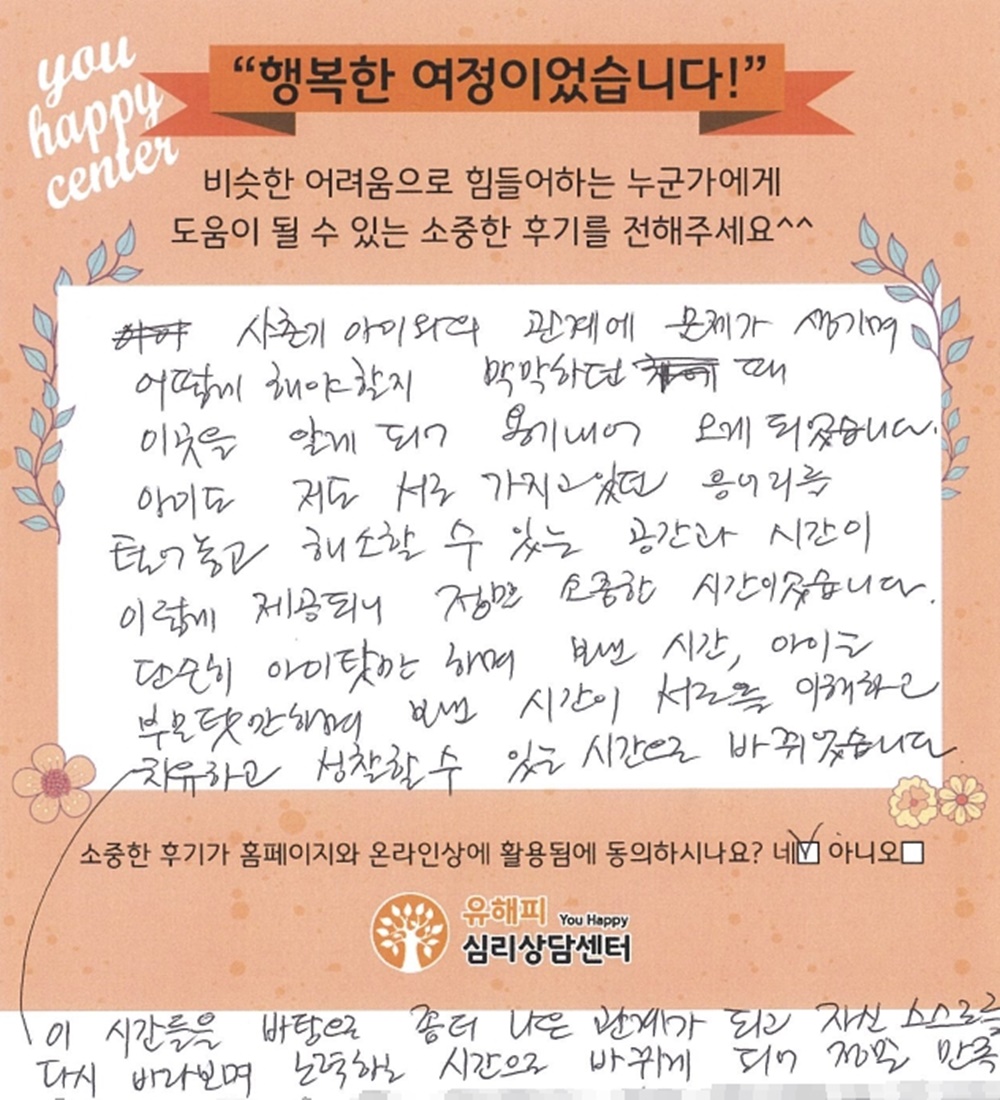 you
happy
center
“행복한 여정이었습니다!”
비슷한 어려움으로 힘들어하는 누군가에게
도움이 될 수 있는 소중한 후기를 전해주세요^^
사춘기 아이와의 관계에 문제가 생기며
어떻게 해야할지 막막하던 때
이곳을 알게 되어 용기내어 오게 되었습니다.
아이도 저도 서로 가지고있던 응어리를
털어놓고 해소할 수 있는 공간과 시간이
이렇게 제공되니 정말 소중한 시간이었습니다.
단순히 아이탓만 하며 보낸 시간, 아이는
부모탓만하며 보낸 시간이 서로를 이해하고
치유하고 성찰할 수 있는 시간으로 바뀌었습니다
소중한 후기가 홈페이지와 온라인상에 활용됨에 동의하시나요? 네 아니오
유해피 You Happy
심리상담센터
이 시간들을 바탕으로 좀더 나은 관계가 되고 자신 스스로를
다시 바라보며 노력하는 시간으로 바뀌게 되어 정말 만족